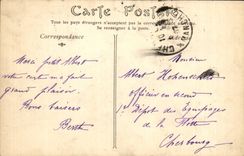 Carte Postale
Tous les pays étrangers n'acceptent pas la correspondance
Se renseigner à la poste
Correspondance
Mon petit Albert
votre carte m'a fait
grand plaisir.
Bons baisers
Berthe
Monsieur
Albert
officier en second
1er Dépôt des Equipages
de la Flotte
Cherbourg